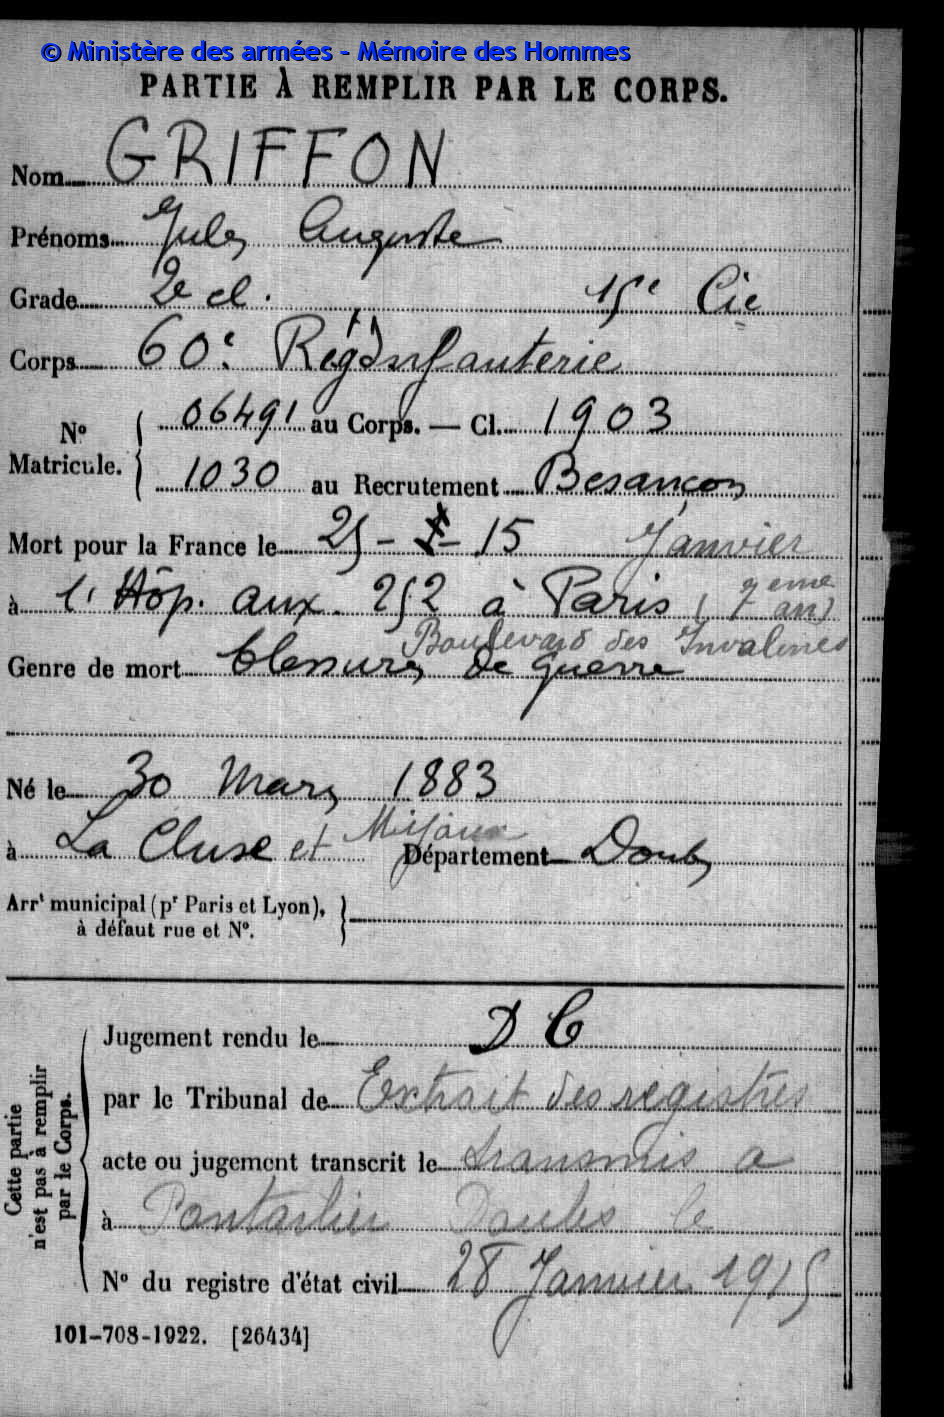 © Ministère des armées - Mémoire des Hommes
PARTIE À REMPLIR PAR LE CORPS.
Nom GRIFFON
Prénoms Jules Auguste
Grade 2e cl. 15e Cie
Corps 60e Rég. d'Infanterie
N° Matricule. { 06491 au Corps. — Cl. 1903
1030 au Recrutement Besançon
Mort pour la France le 25 - I - 15 Janvier
à l'Hôp. aux. 252 à Paris (7eme arr)
Boulevard des Invalides
Genre de mort blessures de guerre
Né le 30 Mars 1883
à La Cluse et Mijoux Département Doubs
Arrt municipal (pr Paris et Lyon), à défaut rue et N°. }
Cette partie n'est pas à remplir par le Corps.
Jugement rendu le D C
par le Tribunal de Extrait des registres
acte ou jugement transcrit le transmis a
à Pontarlier Doubs le
N° du registre d'état civil 28 Janvier 1915
101-708-1922. [26434]